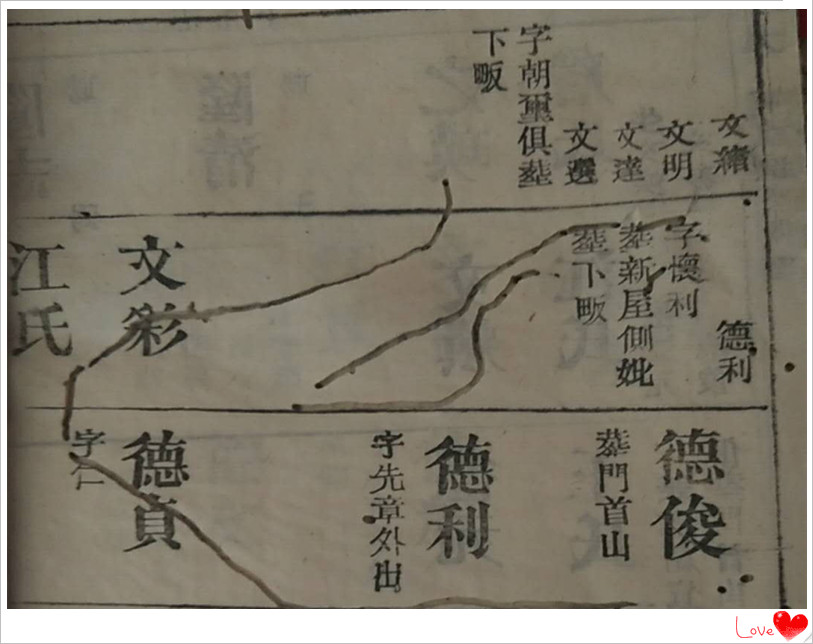 文繡
文明
文達
文選
字朝璽俱塟
下畈
德利
字懷利
塟新屋側妣
塟下畈
文彩
江氏
德俊
塟門首山
德利
字先章外出
德貞
字仁
Love